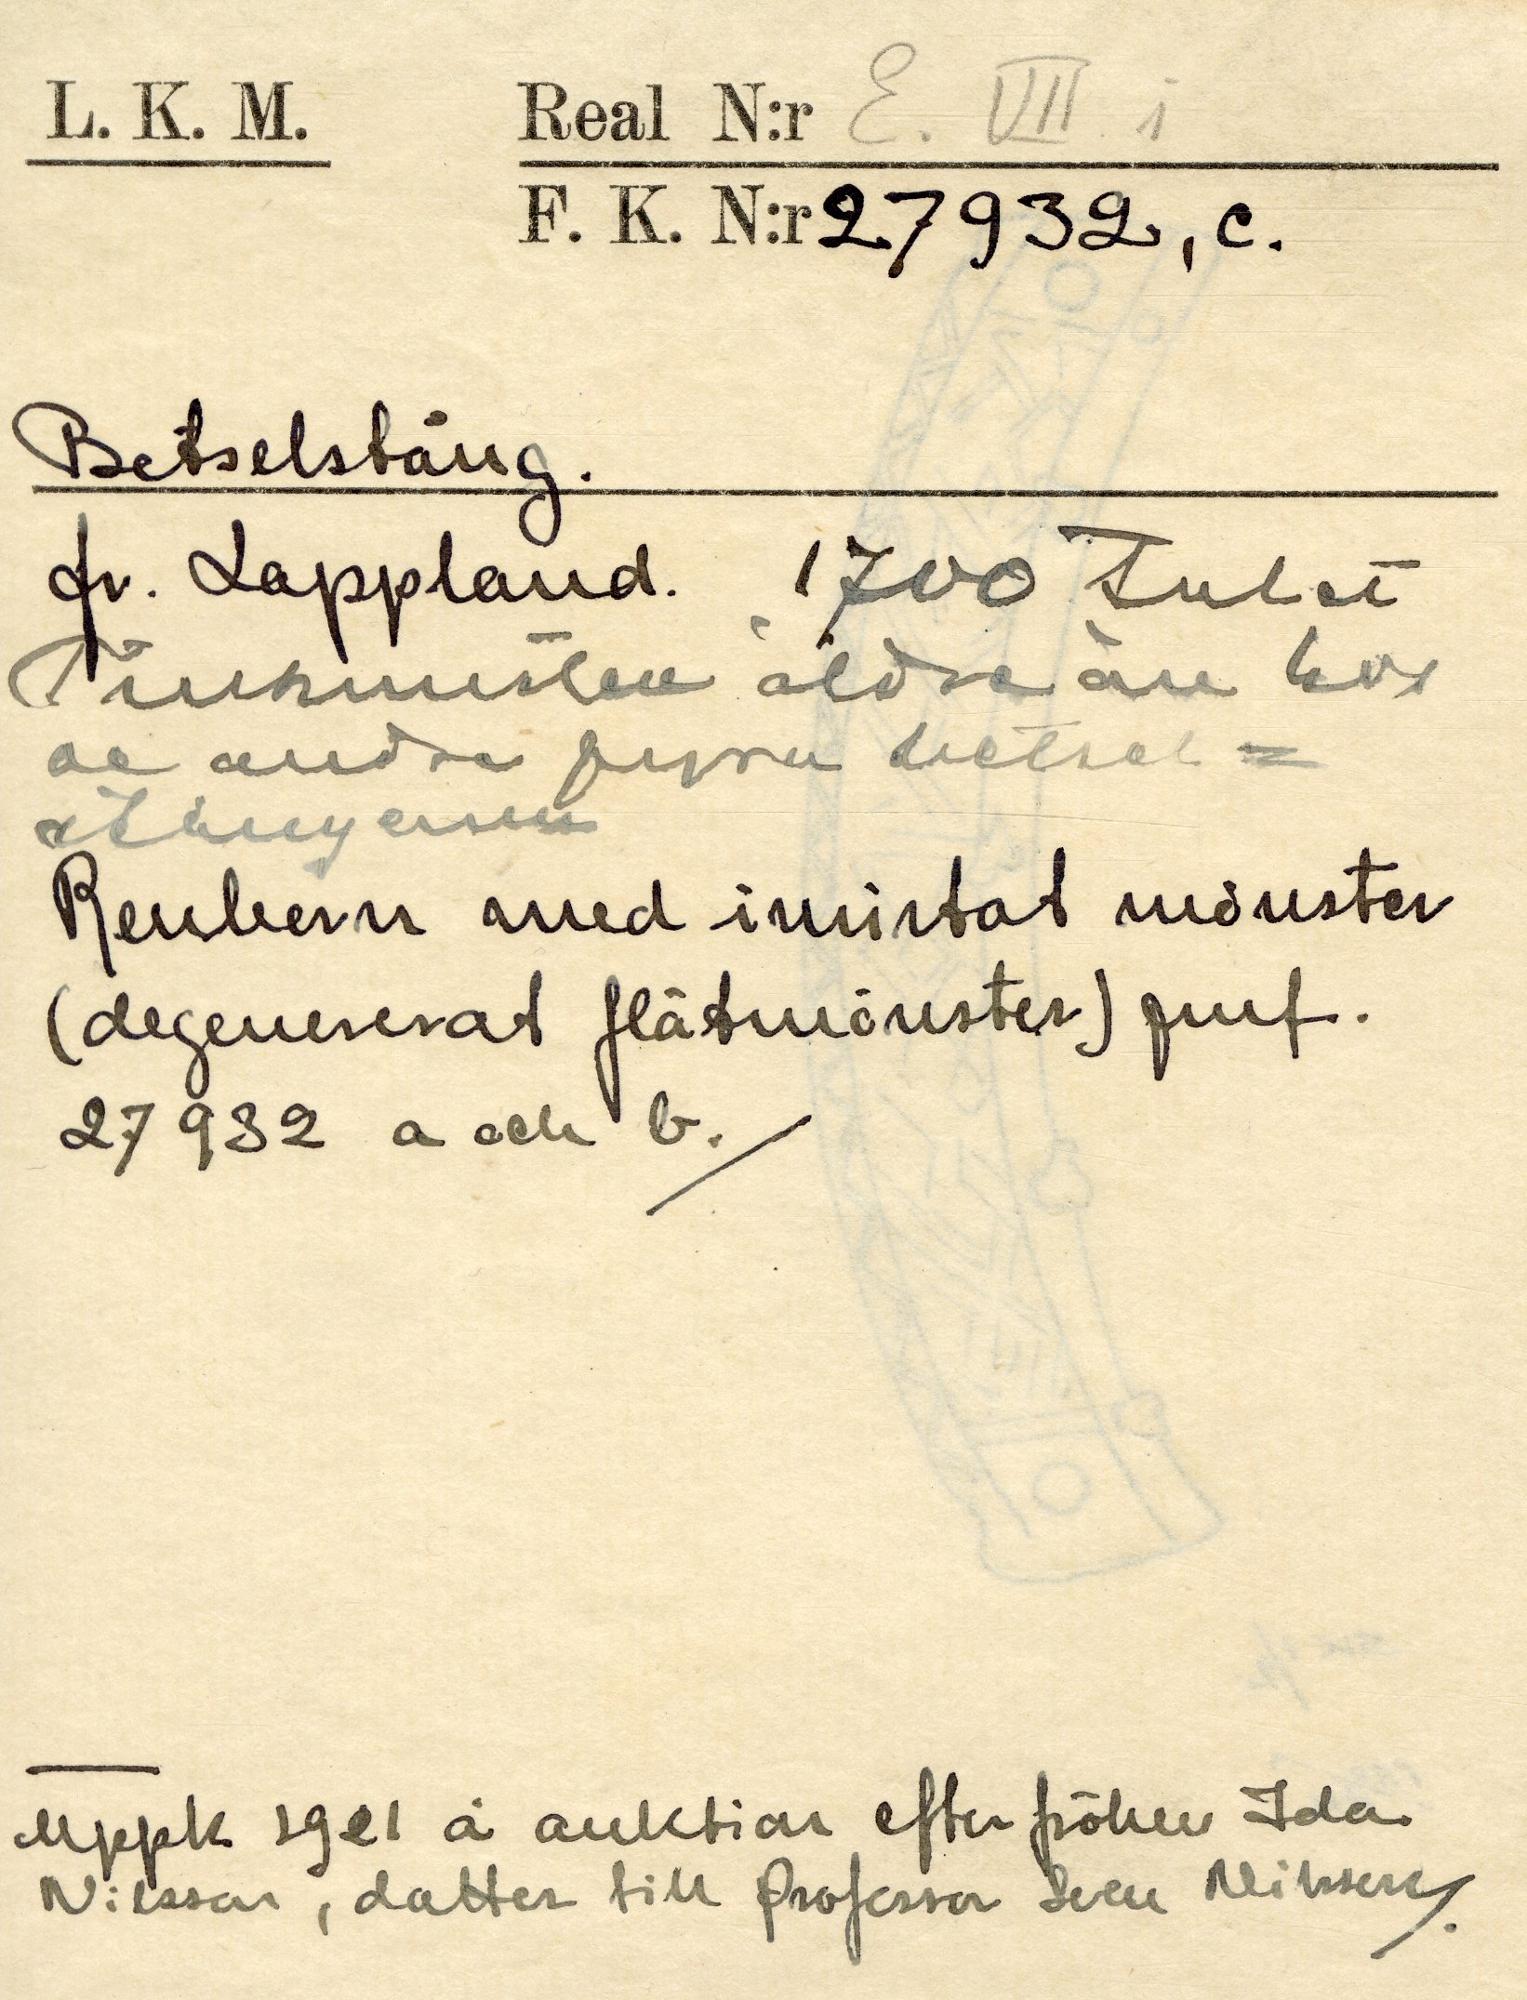 L. K. M.
Real N:r E. VII i
F. K. N:r 27932, c.
Betselstång.
fr. Lappland. 1700 Talet
äldre än hos
de andra fyra betsel=
stängerna
Renhorn med inristat mönster
(degenererat flätmönster) jmf.
27932 a och b.
Uppk 1921 å auktion efter fröken Ida
Nilsson, dotter till Professor Sven Nilsson.